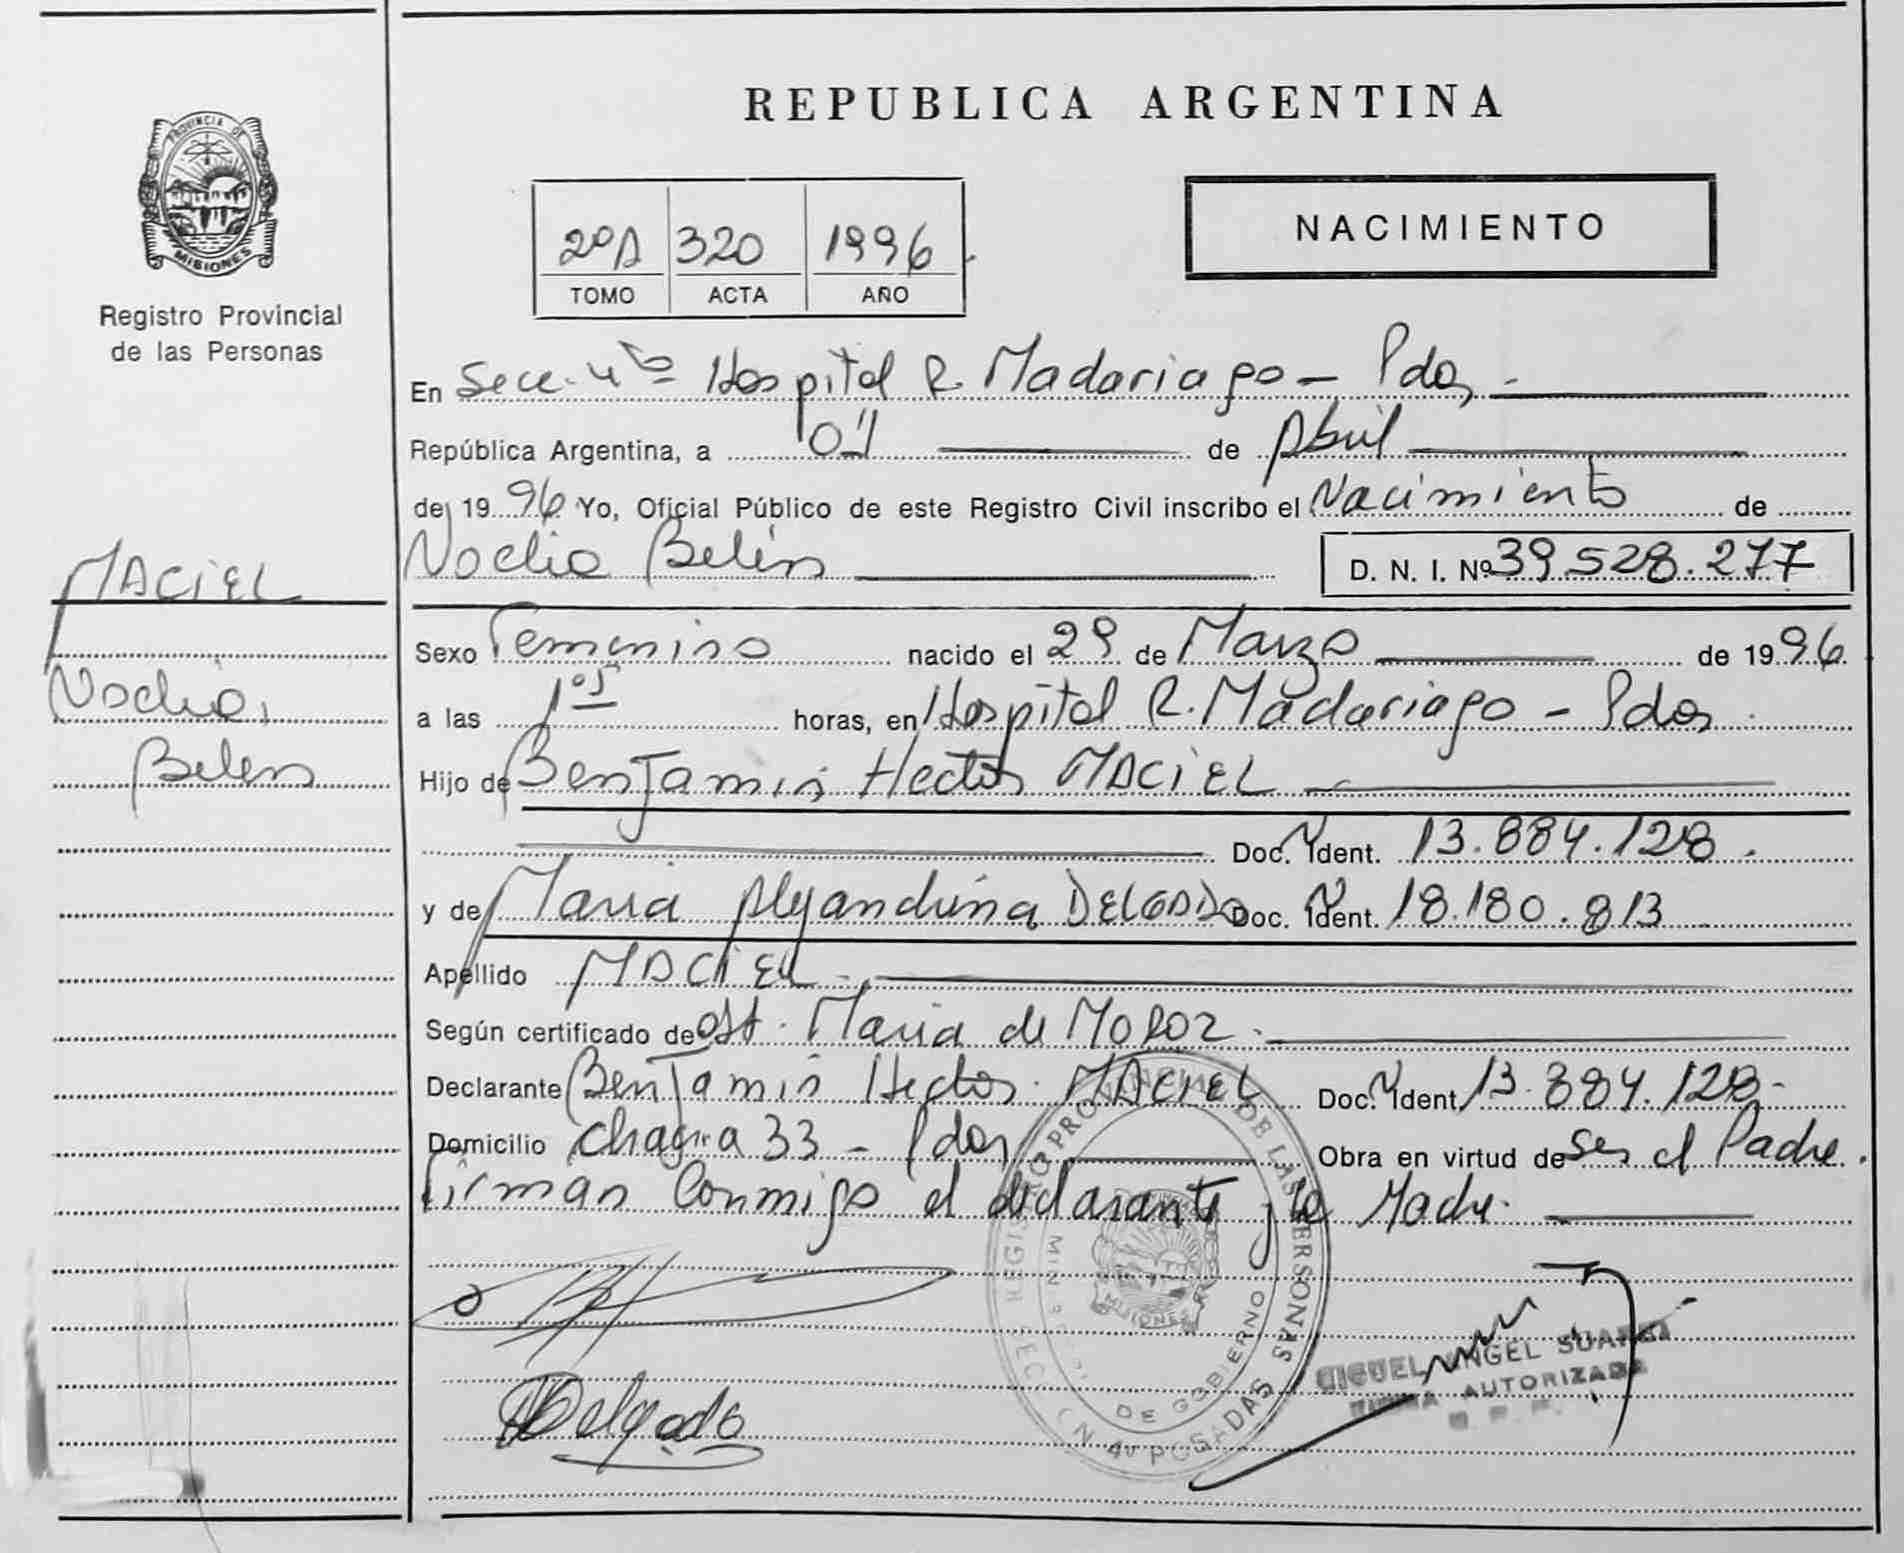 PROVINCIA DE
MISIONES
Registro Provincial
de las Personas
MACIEL
Noelia
Belén
REPUBLICA ARGENTINA
2ºA 320 1996
TOMO ACTA AÑO
NACIMIENTO
En Secc. 4ta Hospital R. Madariaga - Pdas -
República Argentina, a 01 de Abril
de 1996 Yo, Oficial Público de este Registro Civil inscribo el Nacimiento de
Noelia Belén D. N. I. Nº 39.528.277
Sexo Femenino nacido el 29 de Marzo de 1996.
a las 1:05 horas, en Hospital R. Madariaga - Pdas.
Hijo de Benjamin Hector MACIEL
Doc. Ident. 13.884.128.
y de Maria Alejandrina DELGADO Doc. Ident. 18.180.813
Apellido MACIEL.
Según certificado de Obst. Maria de MOROZ.
Declarante Benjamin Hector MACIEL Doc. Ident 13.884.128-
Domicilio Chacra 33 - Pdas Obra en virtud de ser el Padre.
Firman Conmigo el declarante y la Madre.
REGISTRO PROVINCIAL DE LAS PERSONAS
DE GOBIERNO
MISIONES
POSADAS
Delgado
MIGUEL ANGEL SUAREZ
FIRMA AUTORIZADA